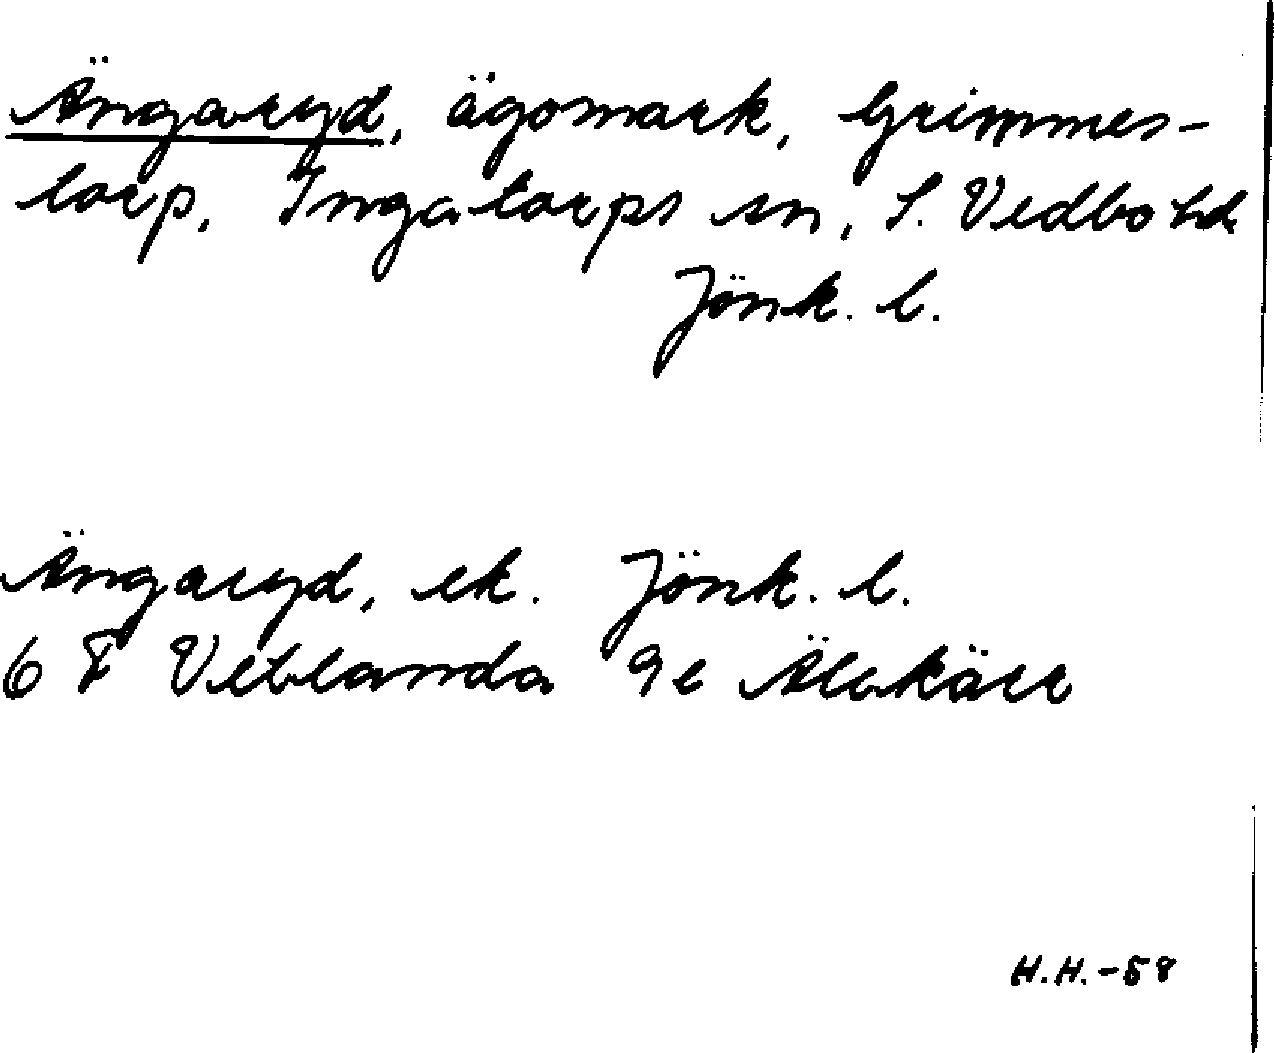 Ängaryd, ägomark, Grimmes-
torp, Ingatorps sn, S. Vedbo hd
Jönk. l.
Ängaryd, ek. Jönk. l.
6 F Vetlanda 9e Älakärr
H.H.-58